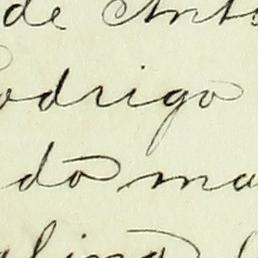 de Anto
odrigo
do ma
alino